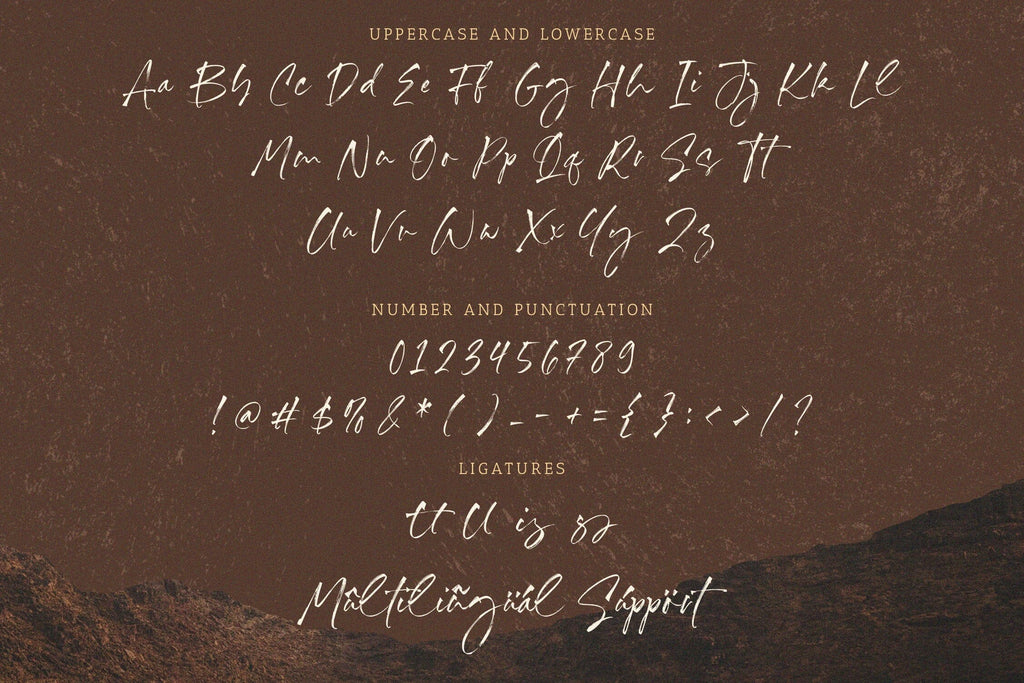 UPPERCASE AND LOWERCASE
Aa Bb Cc Dd Ee Ff Gg Hh Ii Jj Kk Ll
Mm Nn Oo Pp Qq Rr Ss Tt
Uu Vv Ww Xx Yy Zz
NUMBER AND PUNCTUATION
0123456789
!@#$%&*()_-+={}:<>/?
LIGATURES
tt ll is so
Mûltïlíñgüål Súppört